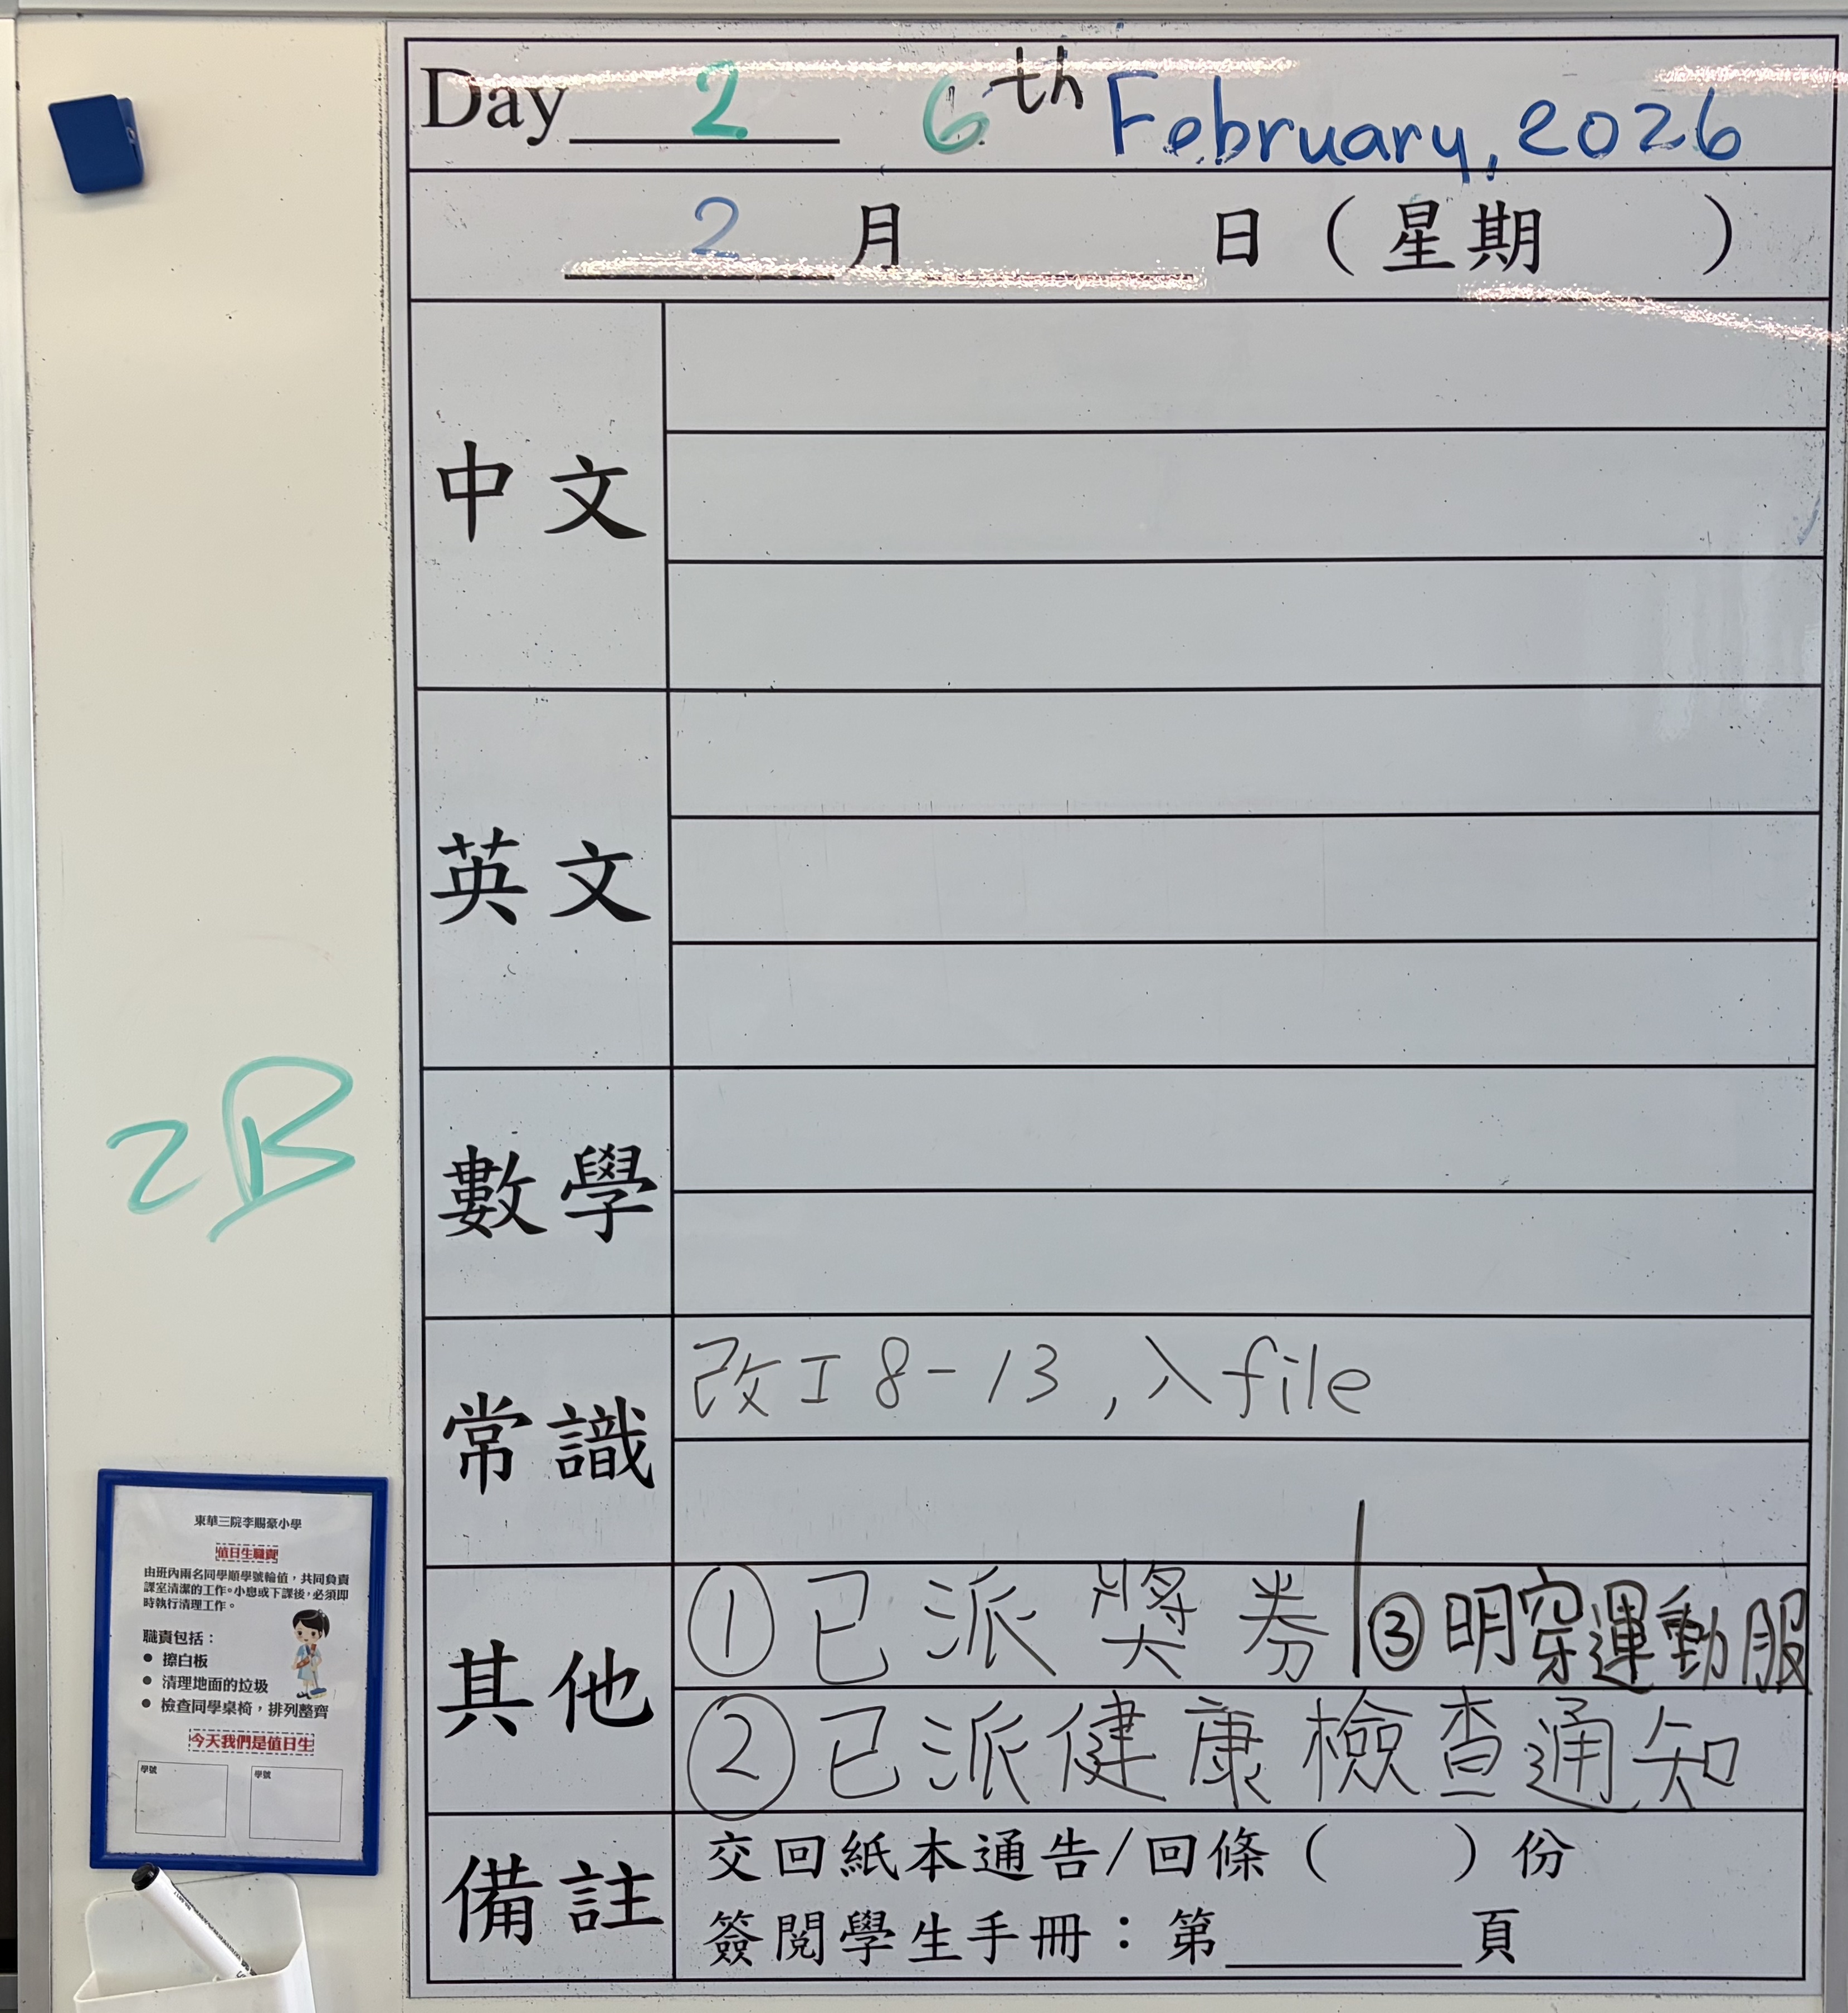 Day 2 6th February, 2026
2 月 日 ( 星期 )
中文
英文
數學
常識
改工 8-13, 入file
其他
① 已派獎券 ③ 明穿運動服
② 已派健康檢查通知
備註
交回紙本通告/回條 ( ) 份
簽閱學生手冊：第 頁
2B
東華三院李賜豪小學
值日生職責
由班內兩名同學順學號輪值，共同負責
課室清潔的工作。小息或下課後，必須即
時執行清理工作。
職責包括：
● 擦白板
● 清理地面的垃圾
● 檢查同學桌椅，排列整齊
今天我們是值日生
學號 學號